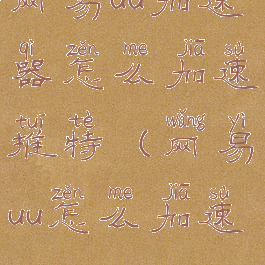 网易uu加速
qì zěn me jiā sù
器怎么加速
tuī tè wǎng yì
推特（网易
zěn me jiā sù
uu怎么加速